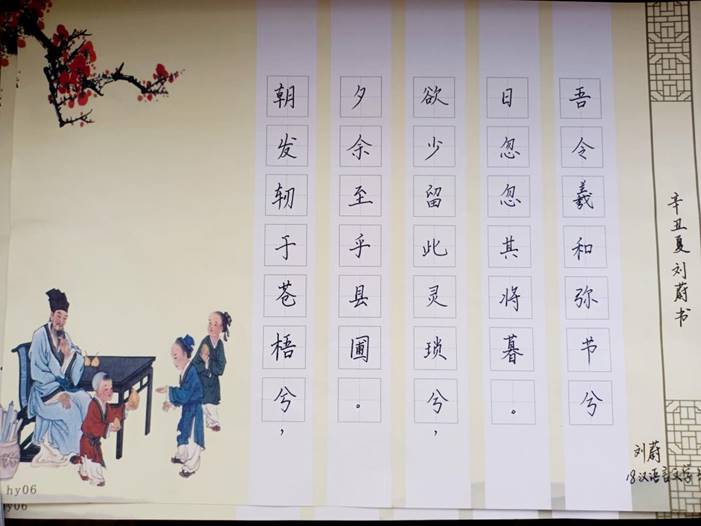 朝发轫于苍梧兮，
夕余至乎县圃。
欲少留此灵琐兮，
日忽忽其将暮。
吾令羲和弥节兮
辛丑夏刘蔚书
刘蔚
18汉语言文学
hy06
hy06